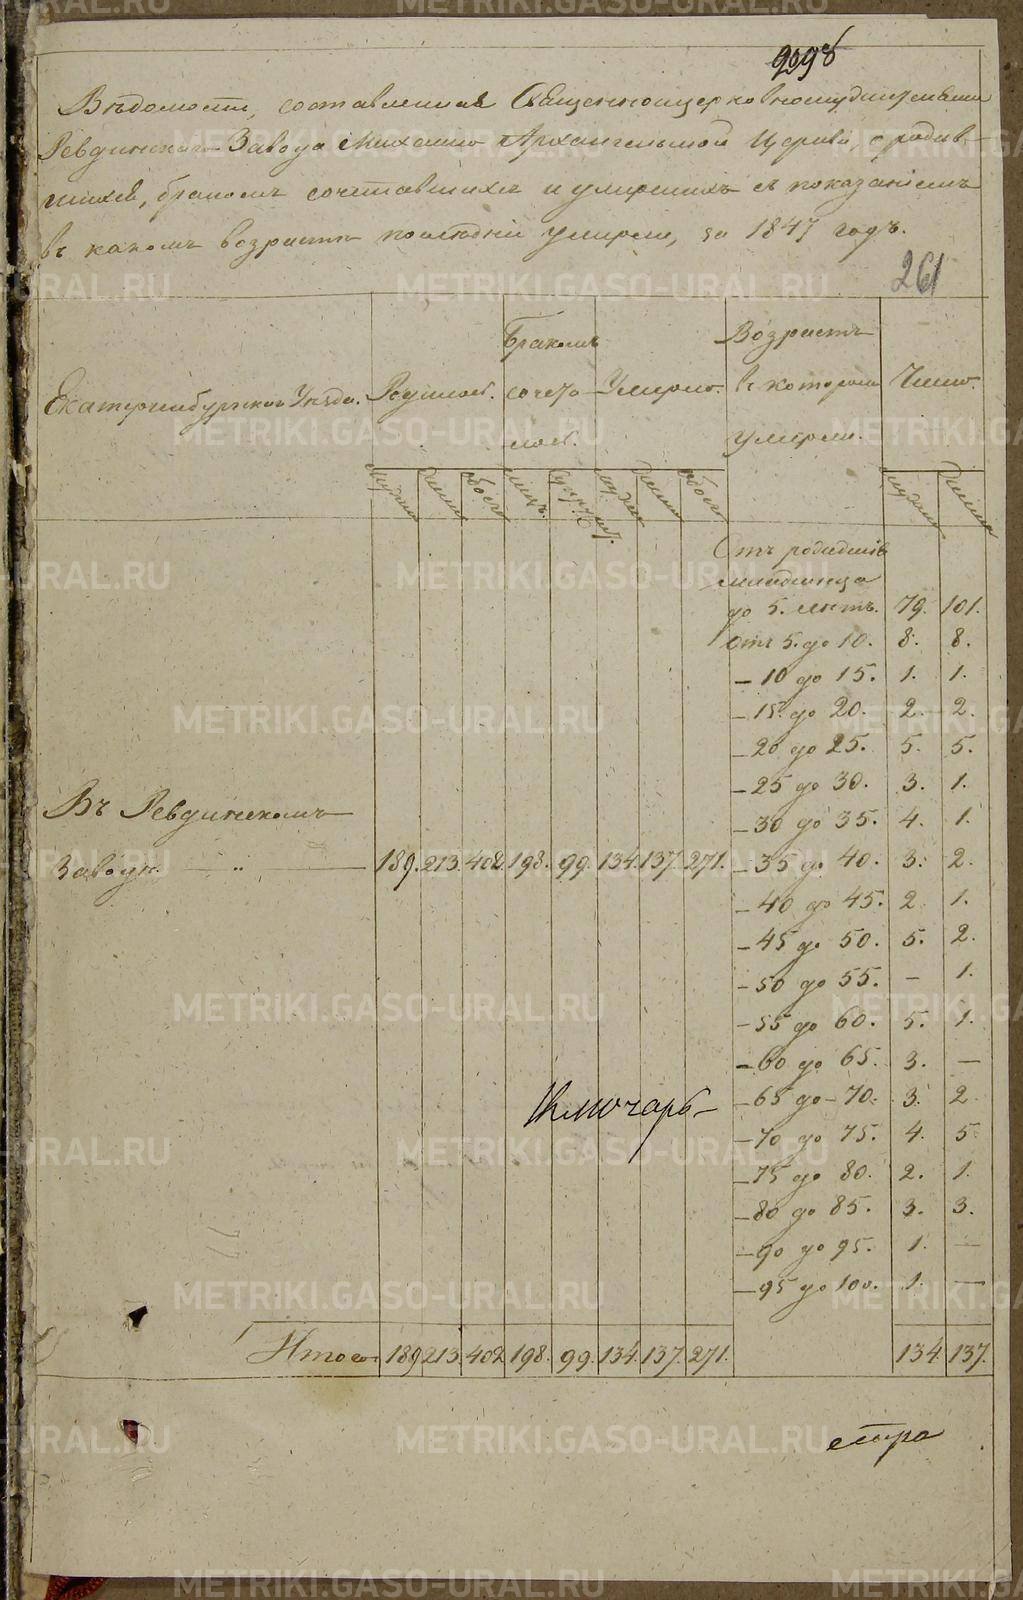 2098
Вѣдомость, составленная Священноцерковнослужителями
Ревдинскаго Завода Михаило Архангельской Церкви, о родив-
шихся, бракомъ сочетавшихся и умершихъ съ показаніемъ
въ какомъ возрастѣ послѣдніе умерли, за 1847 годъ.
261
Екатеринбургскаго Уѣзда.
Родилось.
Бракомъ
сочета
лось.
Умерло.
Возрастъ
въ которомъ
умерли.
Число.
мужска женска обоего лицъ. супруж. мужска женска обоего мужска женска
Отъ рожденія
младенца
до 5. лѣтъ. 79. 101.
Отъ 5. до 10. 8. 8.
— 10 до 15. 1. 1.
— 15. до 20. 2. 2.
— 20 до 25. 5. 5.
— 25 до 30. 3. 1.
— 30 до 35. 4. 1.
Въ Ревдинскомъ
Заводѣ. — „ — 189. 213. 402. 198. 99. 134. 137. 271. — 35 до 40. 3. 2.
— 40 до 45. 2. 1.
— 45 до 50. 5. 2.
— 50 до 55. — 1.
— 55 до 60. 5. 1.
— 60 до 65. 3. —
Ключарь — 65 до 70. 3. 2.
— 70 до 75. 4. 5
— 75 до 80. 2. 1.
— 80 до 85. 3. 3.
— 90 до 95. 1. —
— 95 до 100. 1. —
Итого 189 213. 402 198. 99. 134. 137. 271. 134. 137.
METRIKI.GASO-URAL.RU